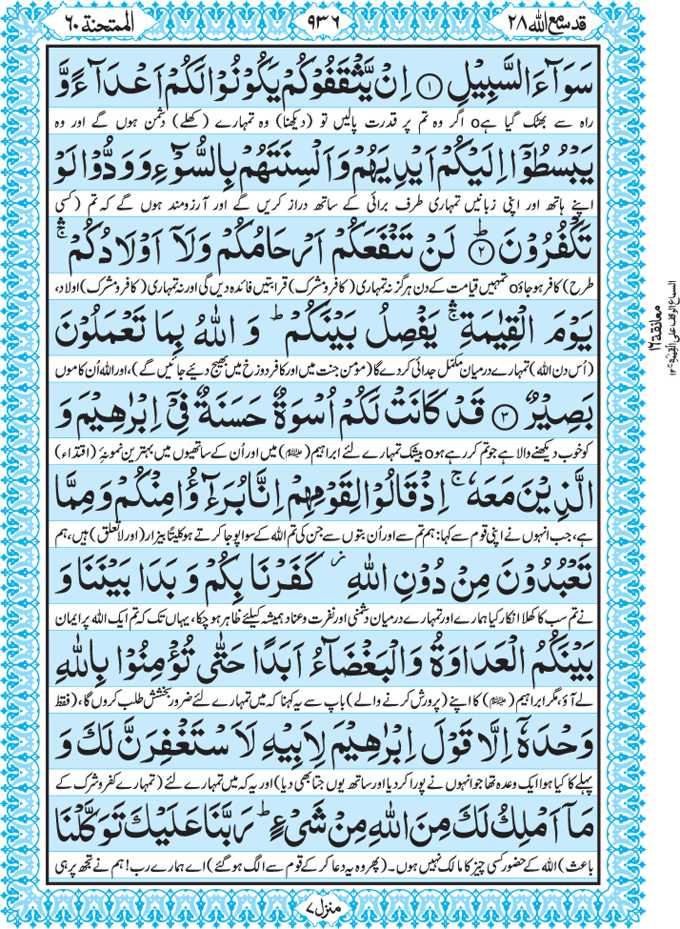 قد سمع الله ٢٨
٩٣٦
الممتحنة ٦٠
سَوَآءَ السَّبِیْلِ ۝۱ اِنْ یَّثْقَفُوْكُمْ یَكُوْنُوْا لَكُمْ اَعْدَآءً وَّ
راہ سے بھٹک گیا ہےo اگر وہ تم پر قدرت پالیں تو (دیکھنا) وہ تمہارے (کھلے) دشمن ہوں گے اور وہ
یَبْسُطُوْۤا اِلَیْكُمْ اَیْدِیَهُمْ وَ اَلْسِنَتَهُمْ بِالسُّوْٓءِ وَ وَدُّوْا لَوْ
اپنے ہاتھ اور اپنی زبانیں تمہاری طرف برائی کے ساتھ دراز کریں گے اور آرزومند ہوں گے کہ تم (کسی
تَكْفُرُوْنَ ؕ۝۲ لَنْ تَنْفَعَكُمْ اَرْحَامُكُمْ وَ لَاۤ اَوْلَادُكُمْ ۛۚ
طرح) کافر ہوجاؤo تمہیں قیامت کے دن ہرگز نہ تمہاری (کافر و مشرک) قرابتیں فائدہ دیں گی اور نہ تمہاری (کافر و مشرک) اولاد،
یَوْمَ الْقِیٰمَةِ ۛۚ یَفْصِلُ بَیْنَكُمْ ؕ وَ اللّٰهُ بِمَا تَعْمَلُوْنَ
(اُس دن اللہ) تمہارے درمیان مکمل جدائی کردے گا (مؤمن جنت میں اور کافر دوزخ میں بھیج دیے جائیں گے)، اور اللہ اُن کاموں
بَصِیْرٌ ۝۳ قَدْ كَانَتْ لَكُمْ اُسْوَةٌ حَسَنَةٌ فِیْۤ اِبْرٰهِیْمَ وَ
کو خوب دیکھنے والا ہے جو تم کر رہے ہوo بیشک تمہارے لئے ابراہیم (علیہ السلام) میں اور اُن کے ساتھیوں میں بہترین نمونۂ (اقتداء)
الَّذِیْنَ مَعَهٗ ۚ اِذْ قَالُوْا لِقَوْمِهِمْ اِنَّا بُرَءٰٓؤُا مِنْكُمْ وَ مِمَّا
ہے، جب انہوں نے اپنی قوم سے کہا: ہم تم سے اور اُن بتوں سے جن کی تم اللہ کے سوا پوجا کرتے ہو کلیتًا بیزار (اور لاتعلق) ہیں، ہم
تَعْبُدُوْنَ مِنْ دُوْنِ اللّٰهِ ؗ كَفَرْنَا بِكُمْ وَ بَدَا بَیْنَنَا وَ
نے تم سب کا کھلا انکار کیا ہمارے اور تمہارے درمیان دشمنی اور نفرت و عناد ہمیشہ کیلئے ظاہر ہوچکا، یہاں تک کہ تم ایک اللہ پر ایمان
بَیْنَكُمُ الْعَدَاوَةُ وَ الْبَغْضَآءُ اَبَدًا حَتّٰی تُؤْمِنُوْا بِاللّٰهِ
لے آؤ، مگر ابراہیم (علیہ السلام) کا اپنے (پرورش کرنے والے) باپ سے یہ کہنا کہ میں تمہارے لئے ضرور بخشش طلب کروں گا، (فقط
وَحْدَهٗۤ اِلَّا قَوْلَ اِبْرٰهِیْمَ لِاَبِیْهِ لَاَسْتَغْفِرَنَّ لَكَ وَ
پہلے کا کیا ہوا ایک وعدہ تھا جو انہوں نے پورا کردیا اور ساتھ یوں جتا بھی دیا) اور یہ کہ میں تمہارے لئے (تمہارے کفر و شرک کے
مَاۤ اَمْلِكُ لَكَ مِنَ اللّٰهِ مِنْ شَیْءٍ ؕ رَبَّنَا عَلَیْكَ تَوَكَّلْنَا
باعث) اللہ کے حضور کسی چیز کا مالک نہیں ہوں۔ (پھر وہ یہ دعا کرکے قوم سے الگ ہوگئے) اے ہمارے رب! ہم نے تجھ پر ہی
منزل ٧
معانقة ١٦